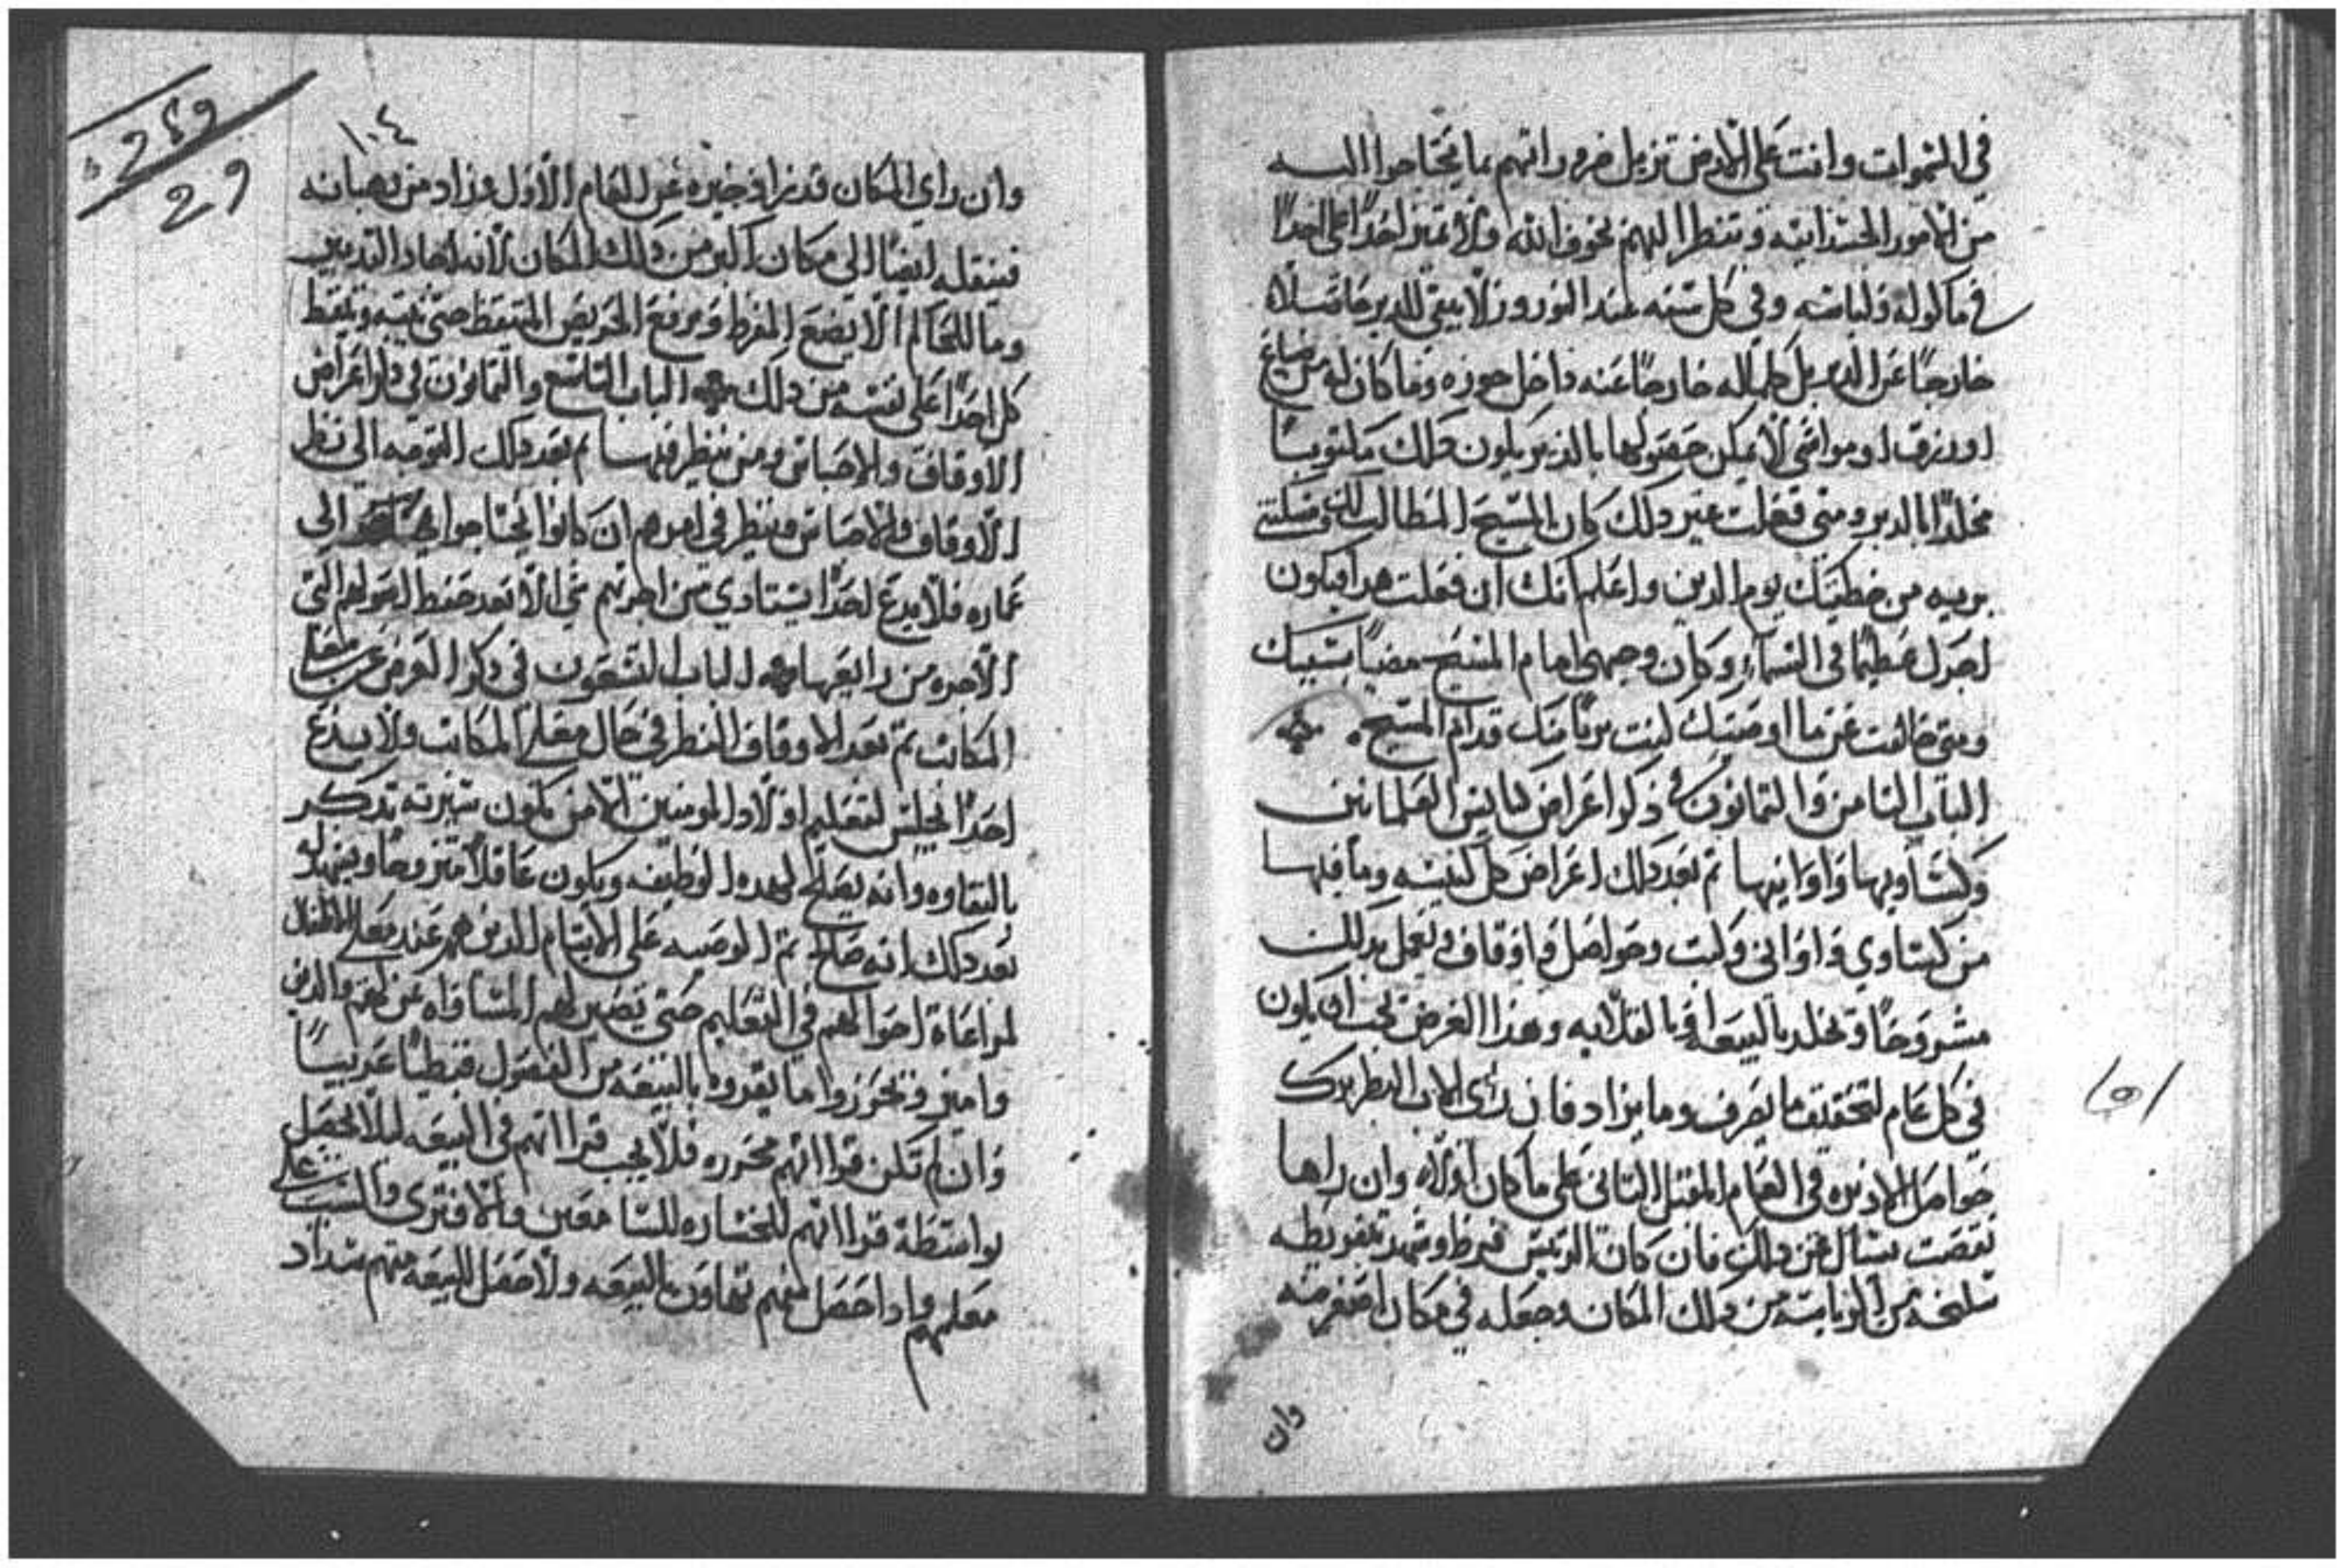 في السموات وانت على الارض تزيل ضروراتهم بما يحتاجوا اليه
من الامور الجسدانيه وتنظر اليهم بخوف الله ولا تميز احدًا على احدًا
في ماكوله ولباسه وفي كل سنه عند النوروز لا يبقى للدير حاصلاً
خارجًا عن الدير بل كلما له خارجًا عنه داخل حوزه وما كان له من ضياع
او رزق او مواشي لا يمكن حصولها بالدير يكون ذلك مكتوبًا
مخلدًا بالدير ومتى فعلت غير ذلك كان المسيح المطالب لك
من خطيتك يوم الدين واعلم انك ان فعلت هدا فيكون
اجرك عظيمًا في السماء وكان وجهي امام المسيح مضيًا بسببك
ومتى خالفت عن ما اوصيتك كنت بريًا منك قدام المسيح
الباب الثامن والتمانون في ذكر اعراض كنايس العلمانين
وكساويها واوانيها تم بعد دلك اعراض كل كنيسه وما فيها
من كساوي واواني وكتب وحواصل واوقاف وتعمل بذلك
مشروحًا وتخلد بالبيعه او بالقلايه وهذا الغرض يجب ان يكون
في كل عام لتحقيق ما يصرف وما يزاد فان رأى الاب البطريرك
حواصل الاديره في العام المقبل التاني على ما كان اولاً وان راها
نقصت يسأل عن دلك فان كان الريس فرط وشهد بتفريطه
سلخه من الرياسه من دلك المكان وجعله في مكان اصغر منه
وان
١٠٤
وان راي المكان قد زاد خيره عن العام الاول وزاد من رهبانه
فينقله ايضًا الي مكان اكبر من دلك المكان لانه اجاد التدبير
وما للحاكم الا يضع المفرط ويرفع الحريص المتيقظ حتى ينتبه ويتيقظ
كل احدًا على نفسه من دلك الباب التاسع والتمانون في ذكر اعراض
الاوقاف والاحباس ومن ينظر فيها تم بعد دلك التوجه الي نظر
الاوقاف والاحباس وينظر في امرهم ان كانوا يحتاجوا الي
عماره فلا يدع احدًا يستادي من اجرتهم شي الا بعد حفظ اصولهم التي
الاجره من رايعها الباب التسعون في دكر العرض عن معلم
المكاتب تم بعد الاوقاف النظر في حال معلم المكاتب ولا يدع
احدًا يجلس لتعليم اولاد المومنين الا من تكون سيرته تدكر
بالنقاوه وانه يصلح لهده الوظيفه ويكون عاقلاً متزوجًا ويشهد له
بعد دلك انه صالح تم الوصيه على الايتام الدين هم عند معلم الاطفال
لمراعاة احوالهم في التعليم حتى تصير لهم المساواه عن لهم والدين
وامين وتحرزوا ما يقروه بالبيعه من الفصول قبطيًا عربيًا
وان لم تكن قرااتهم محرره فلا يجب قرااتهم في البيعه ليلا يحصل
بواسطة قرااتهم للخساره للسامعين والافتري والسبب على
معلمهم وادا حصل منهم تهاون بالبيعه ولا حصل للبيعه منهم سداد
259
29